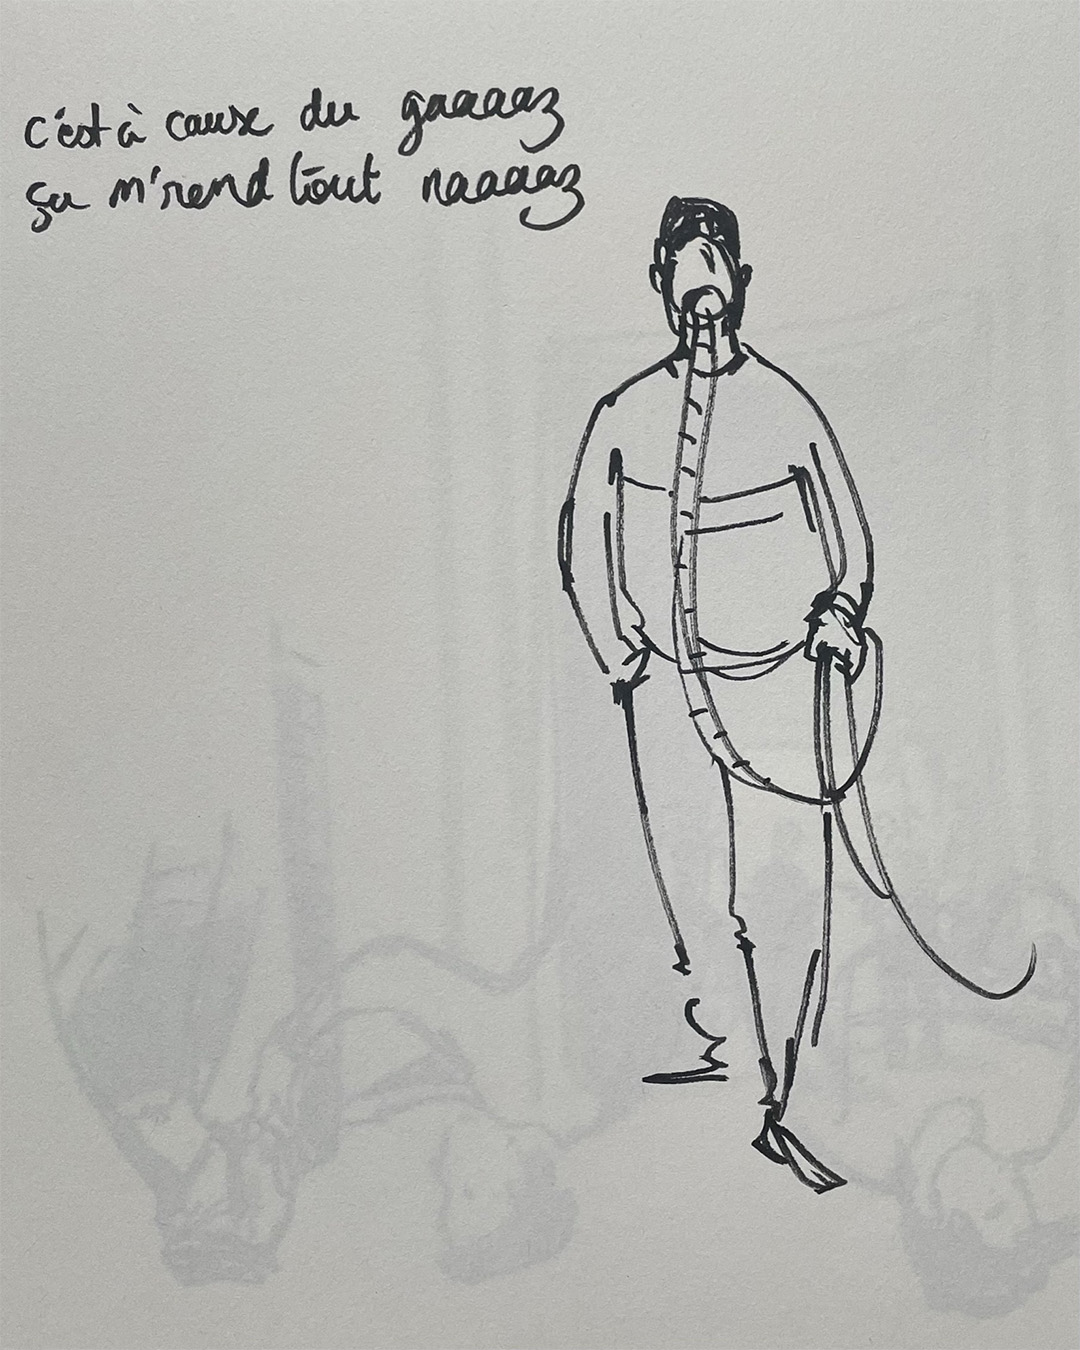 c'est à cause du gaaaaz
ça m'rend tout naaaaz